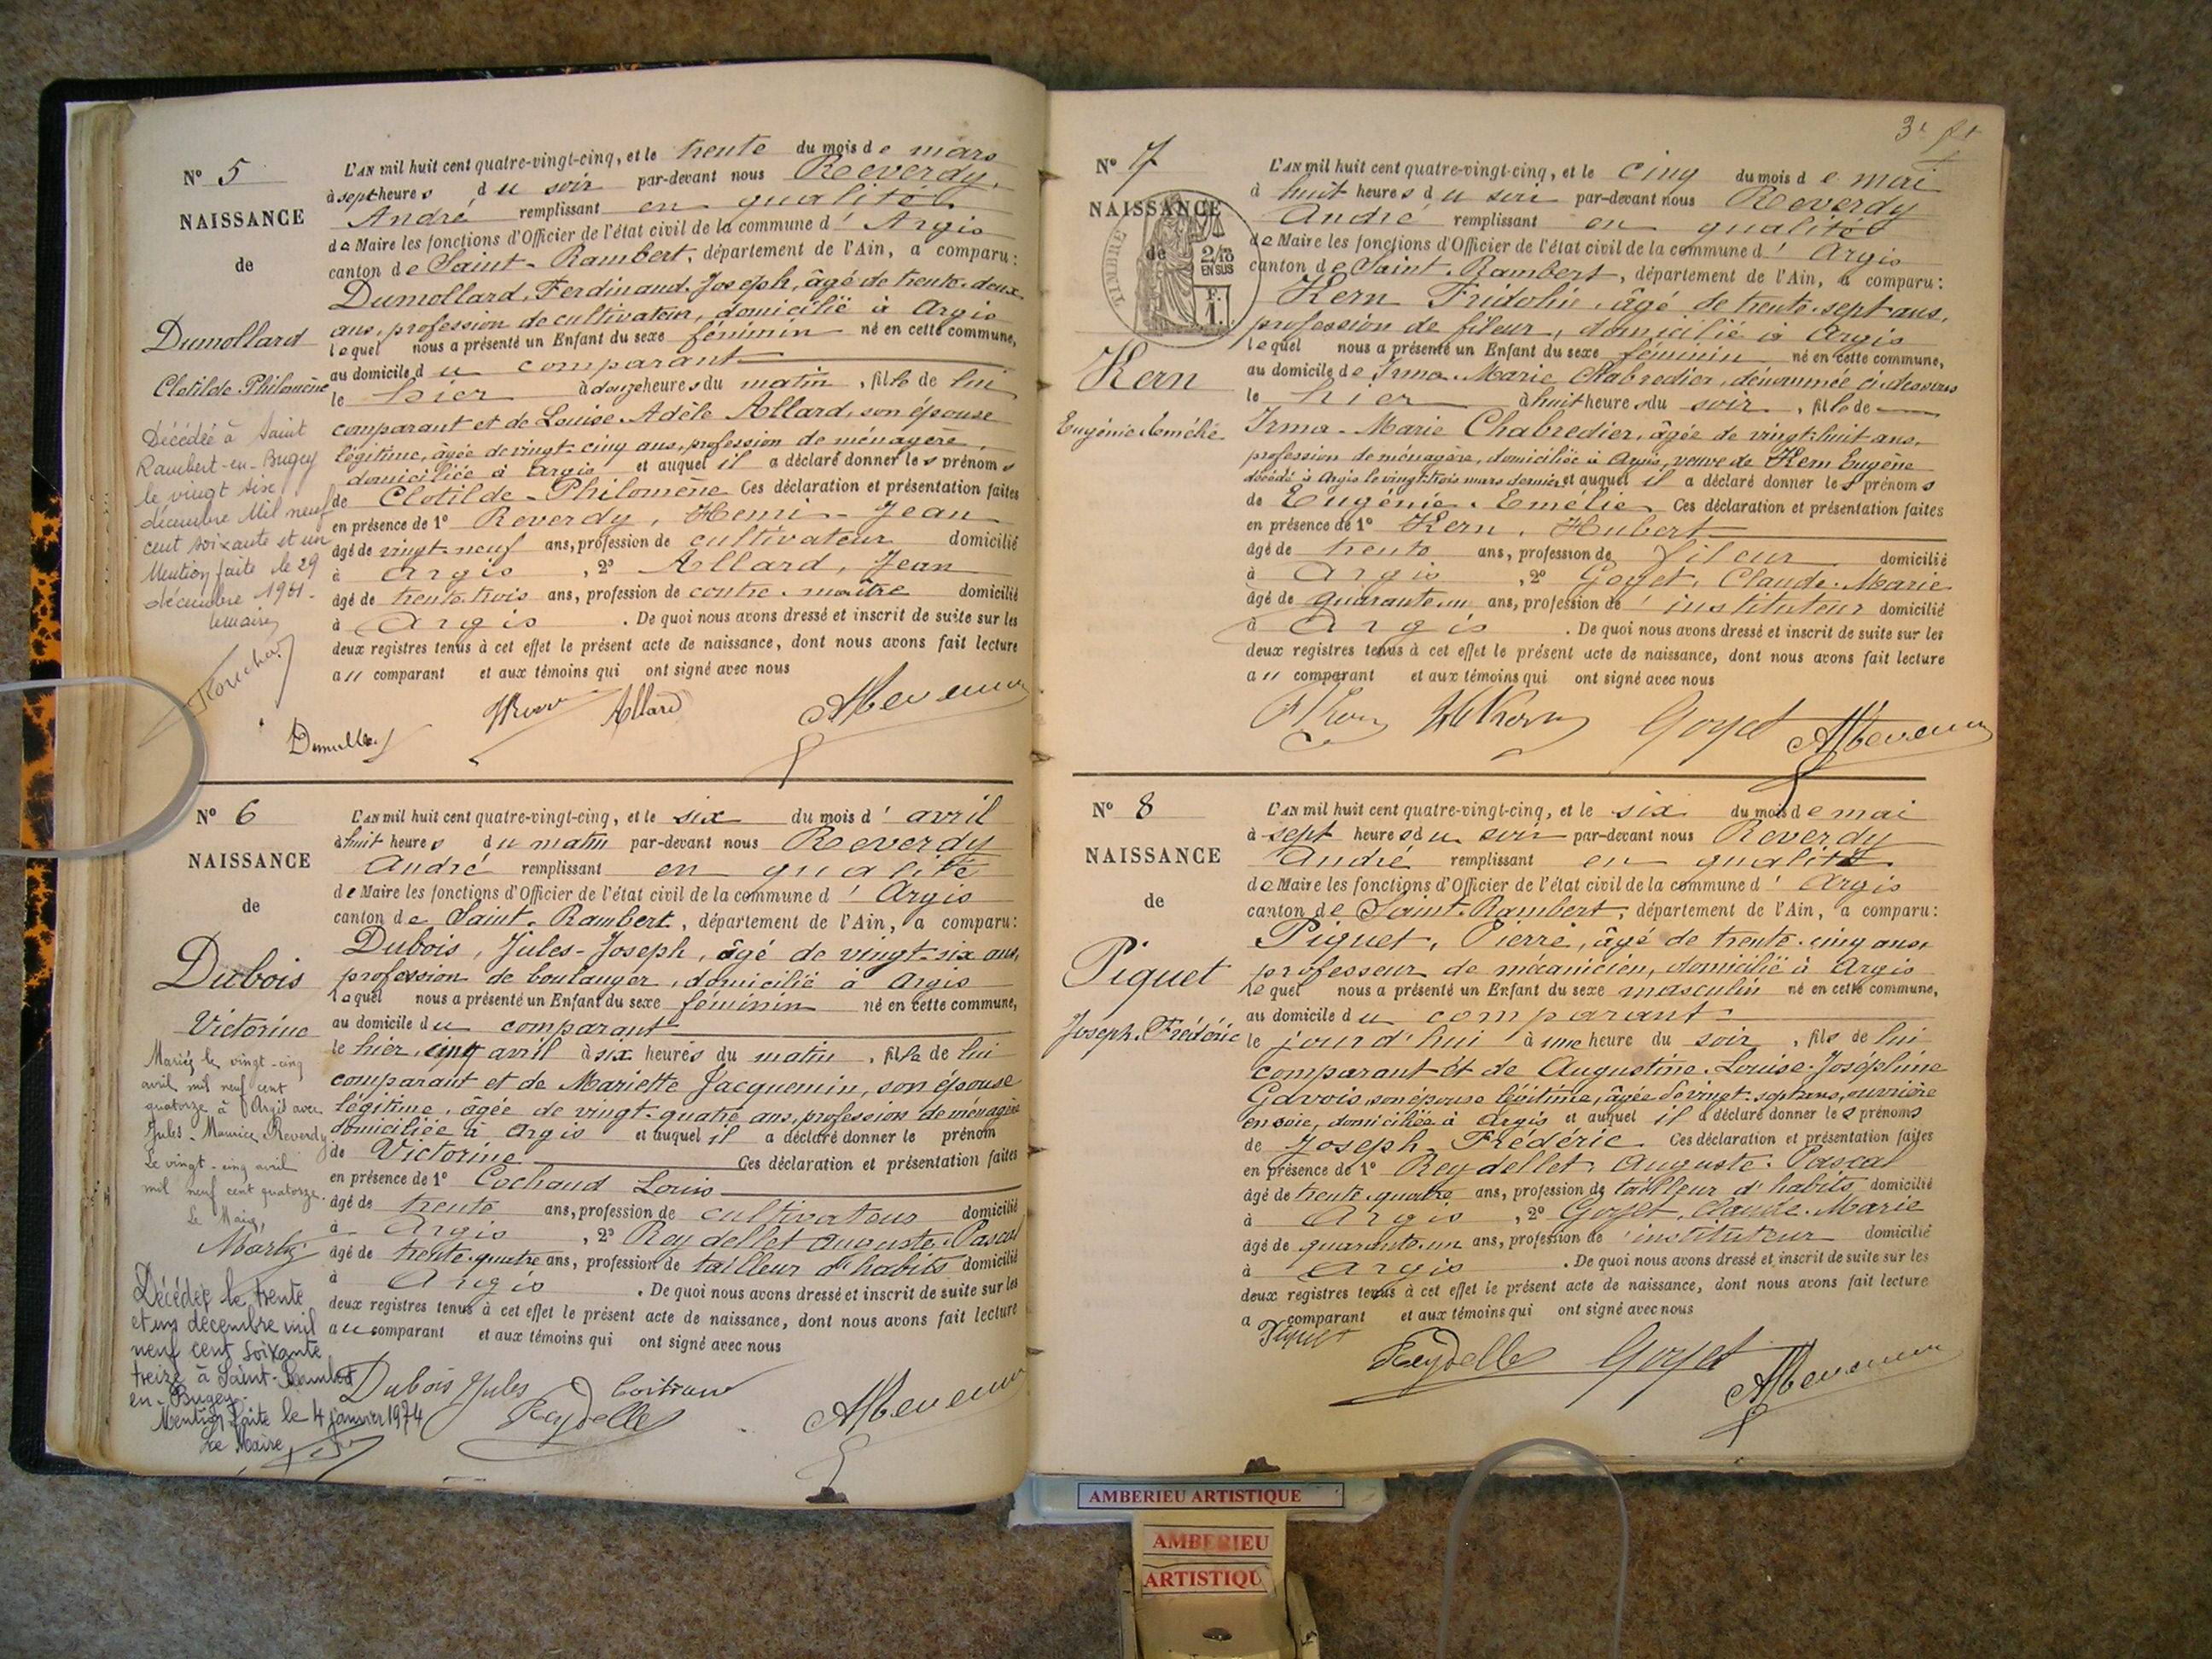 N° 5
NAISSANCE
de
Dumollard
Clotilde-Philomène
Décédée à Saint
Rambert-en-Bugey
le vingt six
décembre Mil neuf
cent soixante et un
Mention faite le 29
décembre 1961-
le maire,
L'AN mil huit cent quatre-vingt-cinq, et le trente du mois de mars
à sept heures du soir par-devant nous Reverdy,
André remplissant en qualité
de Maire les fonctions d'Officier de l'état civil de la commune d'Argis
canton de Saint-Rambert, département de l'Ain, a comparu:
Dumollard, Ferdinand-Joseph, âgé de trente-deux
ans, profession de cultivateur, domicilié à Argis
lequel nous a présenté un Enfant du sexe féminin né en cette commune,
au domicile du comparant
le hier à douze heures du matin, fille de lui
comparant et de Louise-Adèle Allard, son épouse
légitime, âgée de vingt-cinq ans, profession de ménagère,
domiciliée à Argis et auquel il a déclaré donner les prénoms
de Clotilde-Philomène Ces déclaration et présentation faites
en présence de 1° Reverdy, Henri-Jean
âgé de vingt-neuf ans, profession de cultivateur domicilié
à Argis, 2° Allard, Jean
âgé de trente-trois ans, profession de contre-maître domicilié
à Argis. De quoi nous avons dressé et inscrit de suite sur les
deux registres tenus à cet effet le présent acte de naissance, dont nous avons fait lecture
au comparant et aux témoins qui ont signé avec nous
Allard
N° 6
NAISSANCE
de
Dubois
Victorine
Mariée le vingt-cinq
avril mil neuf cent
quatorze à Argis avec
Jules-Maurice Reverdy
Le vingt-cinq avril
mil neuf cent quatorze.
Le Maire,
Décédée le trente
et un décembre mil
neuf cent soixante
treize à Saint-Rambert
en-Bugey.
Mention faite le 4 janvier 1974
Le Maire
L'AN mil huit cent quatre-vingt-cinq, et le six du mois d'avril
à huit heures du matin par-devant nous Reverdy
André remplissant en qualité
de Maire les fonctions d'Officier de l'état civil de la commune d'Argis
canton de Saint-Rambert, département de l'Ain, a comparu:
Dubois, Jules-Joseph, âgé de vingt-six ans,
profession de boulanger, domicilié à Argis
lequel nous a présenté un Enfant du sexe féminin né en cette commune,
au domicile du comparant
le hier, cinq avril à six heures du matin, fille de lui
comparant et de Mariette Jacquemin, son épouse
légitime, âgée de vingt-quatre ans, profession de ménagère
domiciliée à Argis et auquel il a déclaré donner le prénom
de Victorine Ces déclaration et présentation faites
en présence de 1° Cochaud Louis
âgé de trente ans, profession de cultivateur domicilié
à Argis, 2° Reydellet Auguste-Pascal
âgé de trente-quatre ans, profession de tailleur d'habits domicilié
à Argis. De quoi nous avons dressé et inscrit de suite sur les
deux registres tenus à cet effet le présent acte de naissance, dont nous avons fait lecture
au comparant et aux témoins qui ont signé avec nous
Dubois Jules
Reydellet
3e ft
N° 7
NAISSANCE
de
TIMBRE
2/10
EN SUS
F.
1.
Kern
Eugénie-Émélie
L'AN mil huit cent quatre-vingt-cinq, et le cinq du mois de mai
à huit heures du soir par-devant nous Reverdy
André remplissant en qualité
de Maire les fonctions d'Officier de l'état civil de la commune d'Argis
canton de Saint-Rambert, département de l'Ain, a comparu:
Kern Fridolin, âgé de trente-sept ans,
profession de fileur, domicilié à Argis
lequel nous a présenté un Enfant du sexe féminin né en cette commune,
au domicile de Irma-Marie Chabredier, dénommée ci-dessous
le hier à huit heures du soir, fille de
Irma-Marie Chabredier, âgée de vingt-huit ans,
profession de ménagère, domiciliée à Argis, veuve de Kern Eugène
décédé à Argis le vingt-trois mars dernier et auquel il a déclaré donner les prénoms
de Eugénie-Emélie Ces déclaration et présentation faites
en présence de 1° Kern, Hubert
âgé de trente ans, profession de fileur domicilié
à Argis, 2° Goyet, Claude-Marie
âgé de quarante-un ans, profession d'instituteur domicilié
à Argis. De quoi nous avons dressé et inscrit de suite sur les
deux registres tenus à cet effet le présent acte de naissance, dont nous avons fait lecture
au comparant et aux témoins qui ont signé avec nous
Goyet
N° 8
NAISSANCE
de
Piquet
Joseph-Frédéric
L'AN mil huit cent quatre-vingt-cinq, et le six du mois de mai
à sept heures du soir par-devant nous Reverdy
André remplissant en qualité
de Maire les fonctions d'Officier de l'état civil de la commune d'Argis
canton de Saint-Rambert, département de l'Ain, a comparu:
Piquet, Pierre, âgé de trente-cinq ans,
professeur de mécanicien, domicilié à Argis
lequel nous a présenté un Enfant du sexe masculin né en cette commune,
au domicile du comparant
le jour d'hui à une heure du soir, fils de lui
comparant et de Augustine-Louise-Joséphine
Gavois, son épouse légitime, âgée de vingt-sept ans, ouvrière
en soie, domiciliée à Argis et auquel il a déclaré donner les prénoms
de Joseph-Frédéric Ces déclaration et présentation faites
en présence de 1° Reydellet, Auguste-Pascal
âgé de trente-quatre ans, profession de tailleur d'habits domicilié
à Argis, 2° Goyet, Claude-Marie
âgé de quarante-un ans, profession d'instituteur domicilié
à Argis. De quoi nous avons dressé et inscrit de suite sur les
deux registres tenus à cet effet le présent acte de naissance, dont nous avons fait lecture
a comparant et aux témoins qui ont signé avec nous
Piquet
Reydellet Goyet
AMBERIEU ARTISTIQUE
AMBERIEU
ARTISTIQU